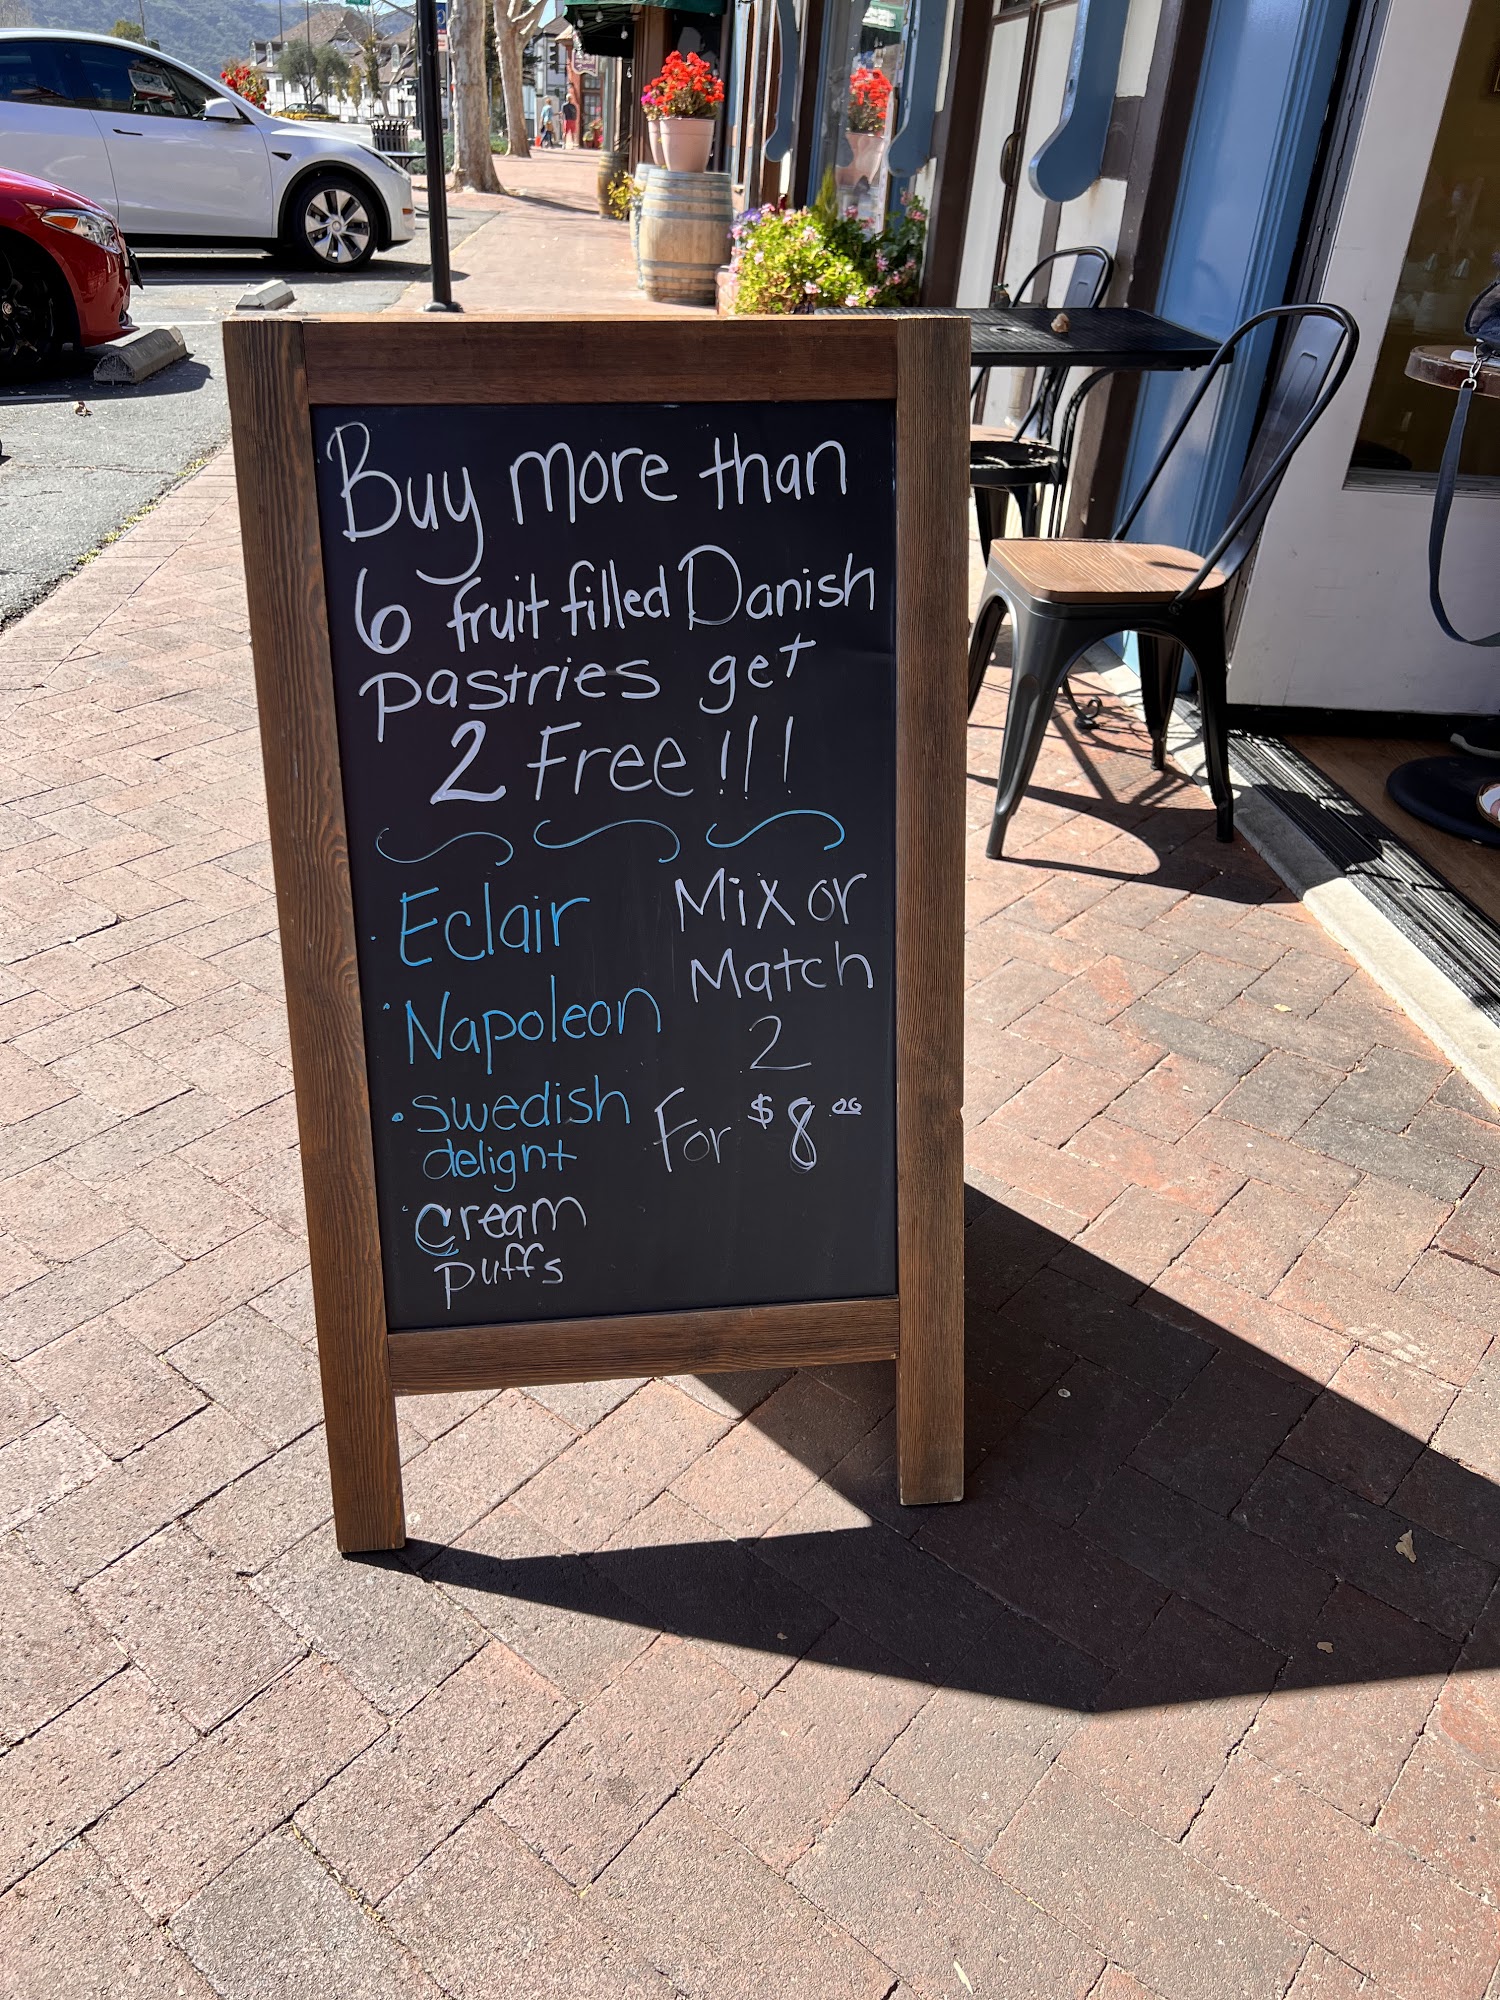 Buy more than
6 fruit filled Danish
pastries get
2 Free!!!
· Eclair
· Napoleon
· Swedish
delight
· Cream
puffs
Mix or
Match
2
For $8.00